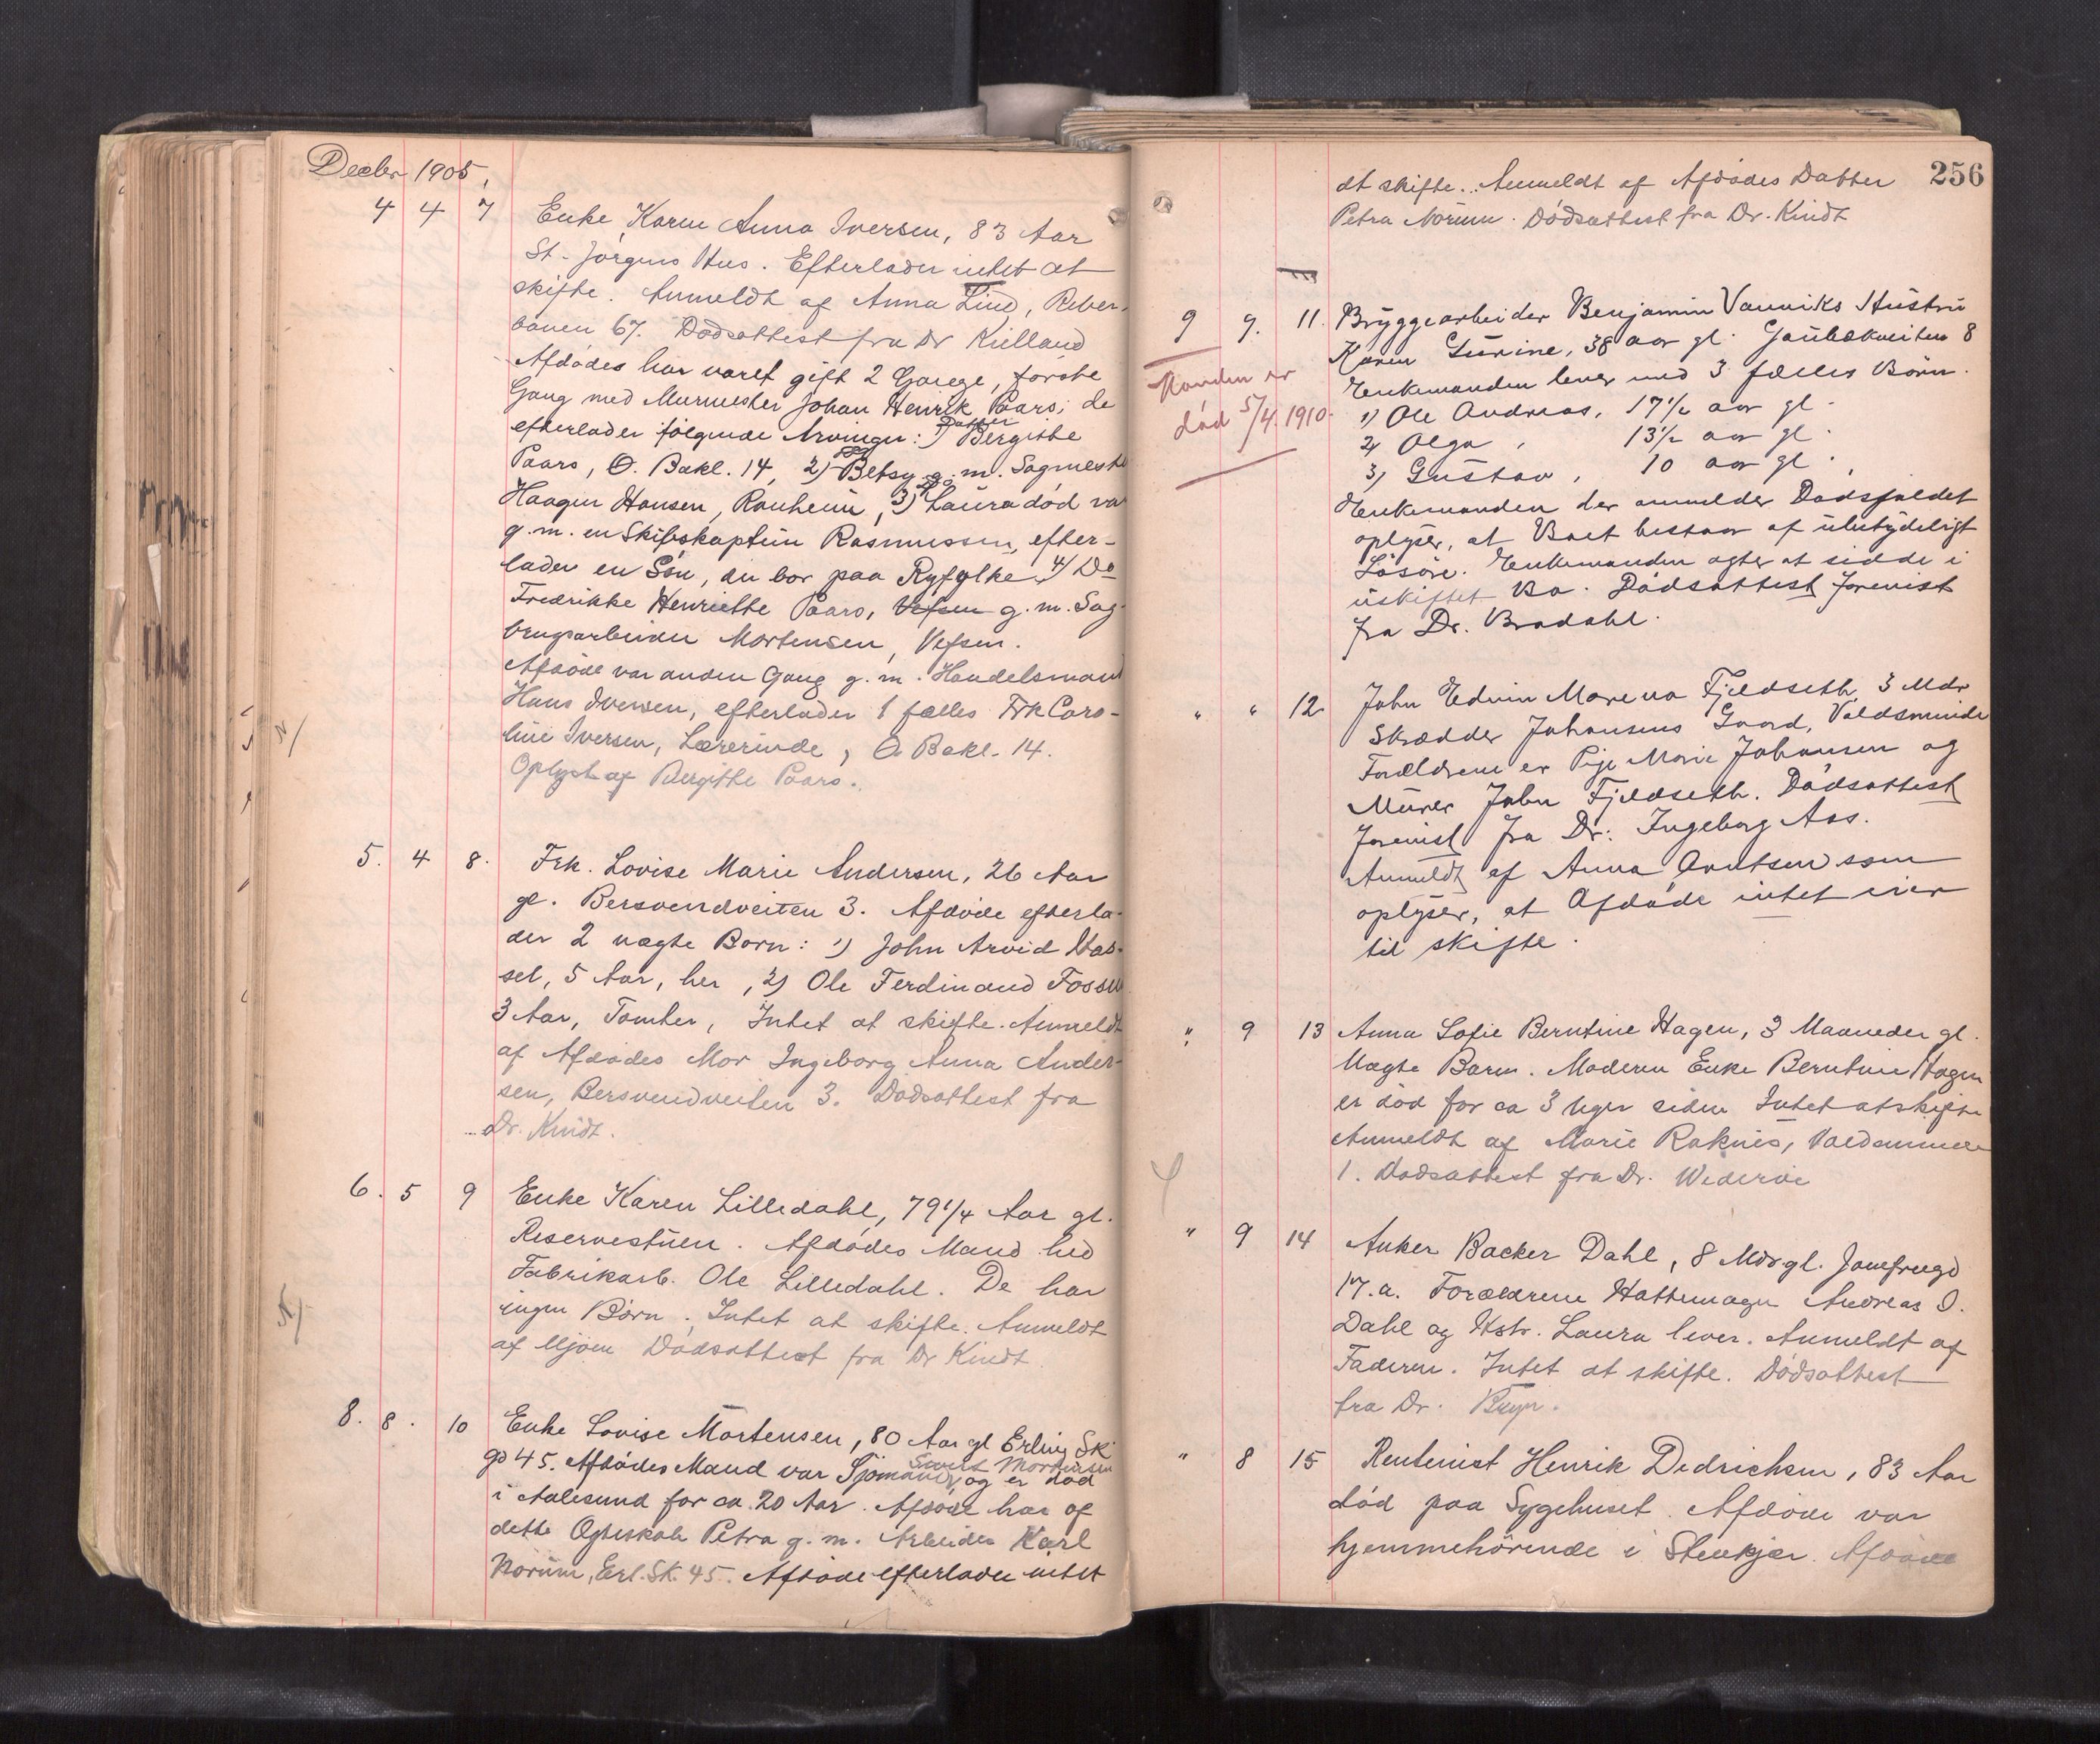 Decbr 1905.
4 4 7 Enke Karen Anna Iversen, 83 Aar
St. Jørgens Hus. Efterlader intet at
skifte. Anmeldt af Anna Lind, Reber-
banen 67. Dødsattest fra Dr Kielland
Afdødes har været gift 2 Gange, første
Gang med Murmester Johan Henrik Paars; de
efterlader følgende Arvinger: 1) Datter Bergithe
Paars, O. Bakl. 14, 2) Betsy g. m. Sagmester
Haagen Hansen, Ranheim, 3) Laura død var
g. m. en Skibskaptein Rasmussen, efter-
lader en Søn, der bor paa Ryfylke 4) Do
Fredrikke Henriette Paars, Vefsen g. m. Sag-
brugsarbeider Mortensen, Vefsen.
Afdøde var anden Gang g. m. Handelsmand
Hans Iversen, efterlader 1 fælles Frk Caro-
line Iversen, Lærerinde, O Bakl. 14.
Oplyst af Bergithe Paars.
5. 4 8. Frk. Lovise Marie Andersen, 26 Aar
gl. Bersvendveiten 3. Afdøde efterla-
der 2 uægte Born: 1) John Arvid Has-
sel, 5 Aar, her, 2) Ole Ferdinand Fossum
3 Aar, Tomter, Intet at skifte. Anmeldt
af Afdødes Mor Ingeborg Anna Ander-
sen, Bersvendveiten 3. Dødsattest fra
Dr. Kindt.
6. 5 9 Enke Karen Lilledahl, 79 1/4 Aar gl.
Reservestuen. Afdødes Mand hed
Fabrikarb. Ole Lilledahl. De har
ingen Børn. Intet at skifte. Anmeldt
af Mjøen Dødsattest fra Dr Kindt.
8. 8. 10 Enke Lovise Mortensen, 80 Aar gl Erling Sk
gd 45. Afdødes Mand var Sjømand Sivert Mortensen og er død
i Aalesund for ca. 20 Aar. Afdøde har af
dette Ægteskab Petra g. m. Arbeider Karl
Norum, Erl. Sk. 45. Afdøde efterlader intet
256
at skifte. Anmeldt af Afdødes Datter
Petra Norum. Dødsattest fra Dr. Kindt
9 9. 11. Bryggearbeider Benjamin Vanviks Hustru
Karen Gurine, 38 aar gl. Gaubækveiten 8
Enkemanden lever med 3 fælles Børn.
Manden er
død 5/4 1910.
1) Ole Andreas, 17 1/2 aar gl.
2) Olga, 13 1/2 aar gl.
3) Gustav, 10 aar gl.
Enkemanden der anmelder Dødsfaldet
oplyser, at Boet bestaar af ubetydeligt
Løsøre. Enkemanden agter at sidde i
uskiftet Bo. Dødsattest forevist
fra Dr. Bradahl.
" " 12 John Edvin Marena Fjeldseth, 3 Mdr
Skrædder Johansens Gaard, Valdsminde
Forældrene er Pige Marie Johansen og
Murer John Fjeldseth. Dødsattest
forevist fra Dr. Ingeborg Aas.
Anmeldt af Anna Arntsen som
oplyser, at Afdøde intet eier
til skifte.
" 9 13 Anna Sofie Berntine Hagen, 3 Maaneder gl.
Uægte Barn. Moderen Enke Berntine Hagen
er død for ca 3 Uger siden Intet at skifte
Anmeldt af Marie Raknes,
1. Dødsattest fra Dr. Widerøe
" 9 14 Anker Backer Dahl, 8 Mdr gl. Jomfrugd
17. a. Forældrene Hattemager Andreas O.
Dahl og Hstr. Laura lever. Anmeldt af
Faderen. Intet at skifte. Dødsattest
fra Dr. Bryn.
" 8 15 Rentenist Henrik Dedrichsen, 83 Aar
død paa Sygehuset. Afdøde var
hjemmehørende i Stenkjær. Afdøde